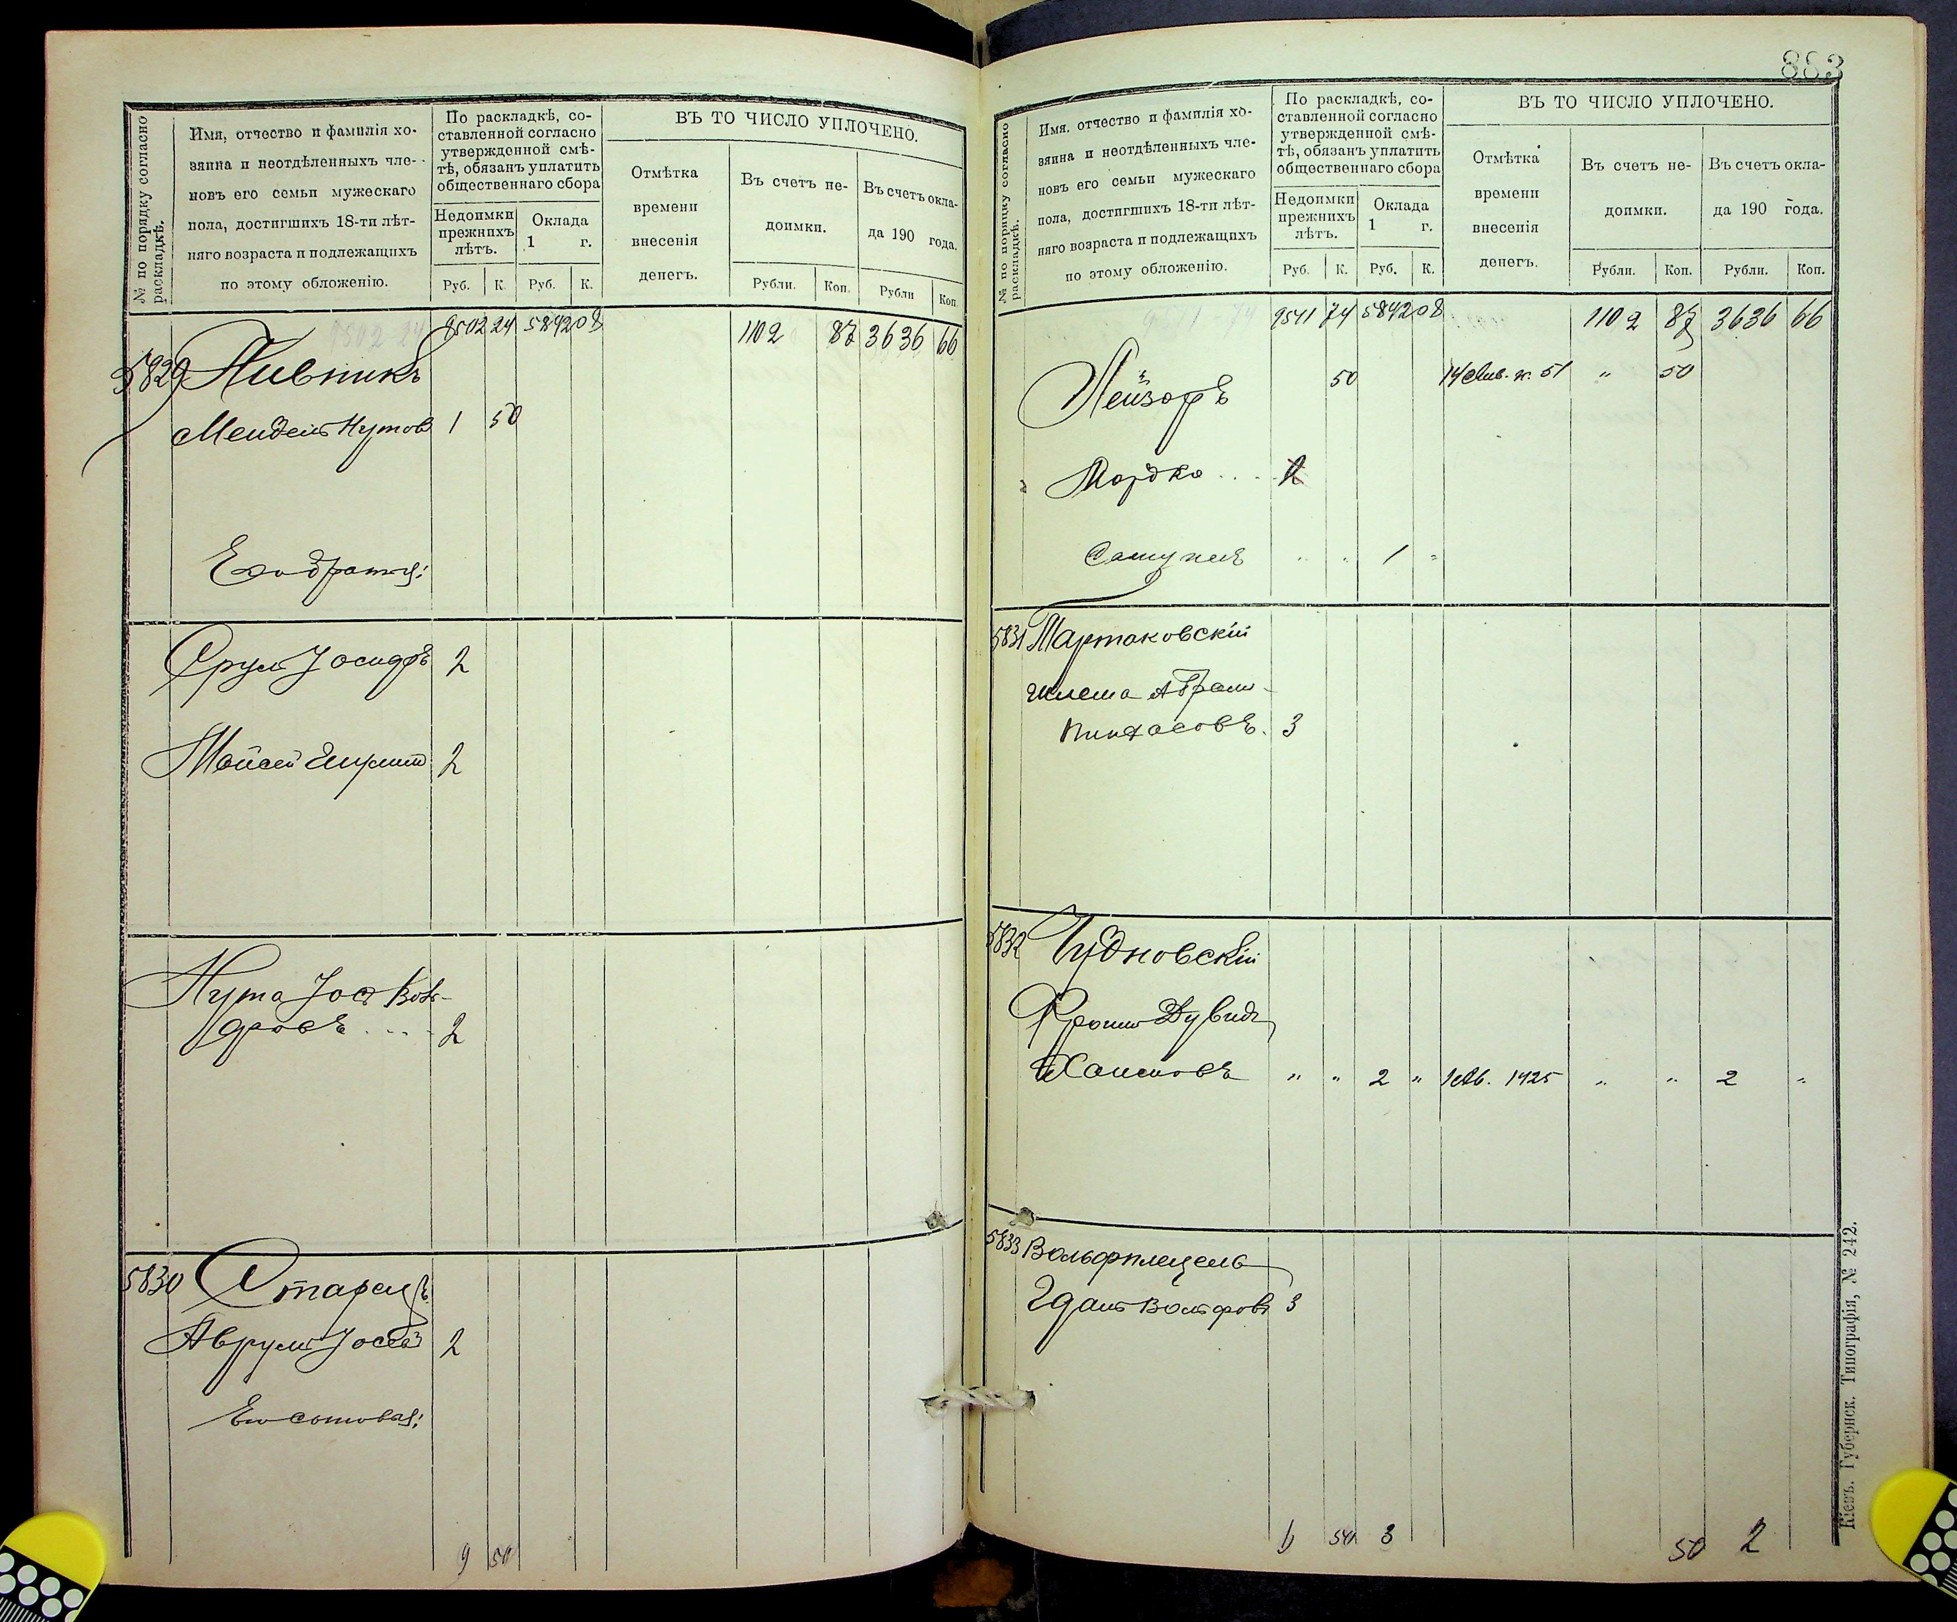 883
№ по порядку согласно раскладкѣ.
Имя, отчество и фамилія хо-
зяина и неотдѣленныхъ чле-
новъ его семьи мужескаго
пола, достигшихъ 18-ти лѣт-
няго возраста и подлежащихъ
по этому обложенію.
По раскладкѣ, со-
ставленной согласно
утвержденной смѣ-
тѣ, обязанъ уплатить
общественнаго сбора
Недоимки прежнихъ лѣтъ.
Оклада 1 г.
Руб. К. Руб. К.
ВЪ ТО ЧИСЛО УПЛОЧЕНО.
Отмѣтка
времени
внесенія
денегъ.
Въ счетъ не-
доимки.
Въ счетъ окла-
да 190 года.
Рубли. Коп. Рубли Коп.
9502 24 5892 08 1102 87 3636 66
5829 Пивникъ
Мендель Нутов 1 50
Его братья:
Срул Іосифъ 2
Мойсей 2
Нута Іос Воль-
фовъ 2
5830 Старецъ
Аврум Іосев 2
Его сыновья:
9 50
№ по порядку согласно раскладкѣ.
Имя, отчество и фамилія хо-
зяина и неотдѣленныхъ чле-
новъ его семьи мужескаго
пола, достигшихъ 18-ти лѣт-
няго возраста и подлежащихъ
по этому обложенію.
По раскладкѣ, со-
ставленной согласно
утвержденной смѣ-
тѣ, обязанъ уплатить
общественнаго сбора
Недоимки прежнихъ лѣтъ.
Оклада 1 г.
Руб. К. Руб. К.
ВЪ ТО ЧИСЛО УПЛОЧЕНО.
Отмѣтка
времени
внесенія
денегъ.
Въ счетъ не-
доимки.
Въ счетъ окла-
да 190 года.
Рубли. Коп. Рубли. Коп.
9511 74 5892 08 1102 87 3636 66
Лейзоръ 50 14 Янв. к. 51 " 50
Мордко
Самуилъ " " 1 "
5831 Тартаковскій
Шлема Абрам-
Пинхасовъ. 3
5832 Чудновскій
Фроим Дувидъ
Хаимовъ " " 2 " 1425 " " 2 "
5833
Вольфовъ 3
6 50 3 50 2
Кіевъ. Губернск. Типографія, № 242.